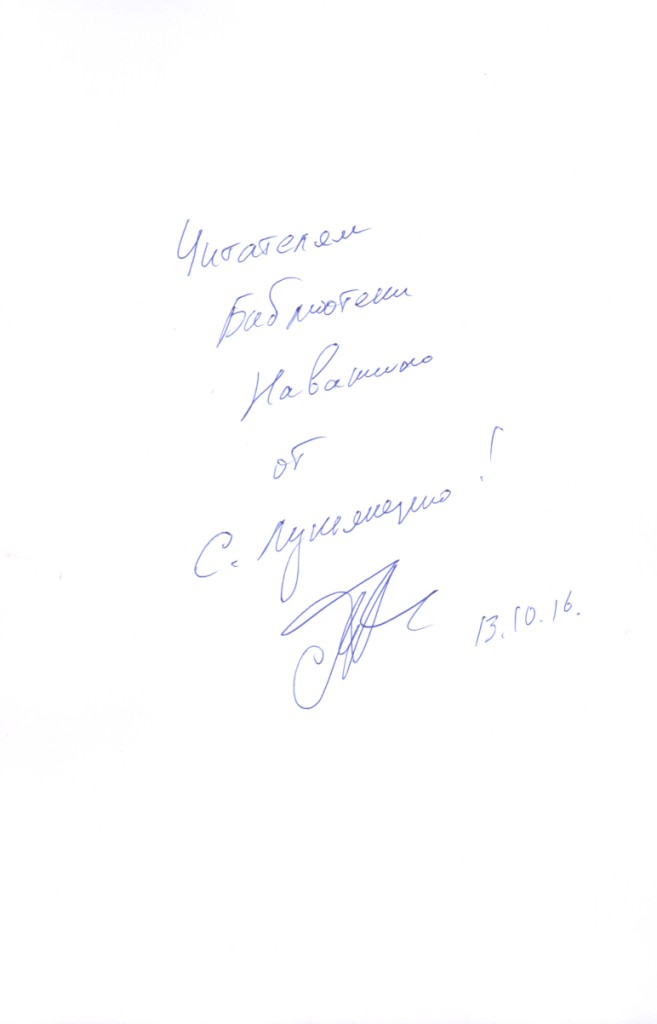 Читателям
Библиотеки
Навашино
от
С. Лукьяненко!
13.10.16.